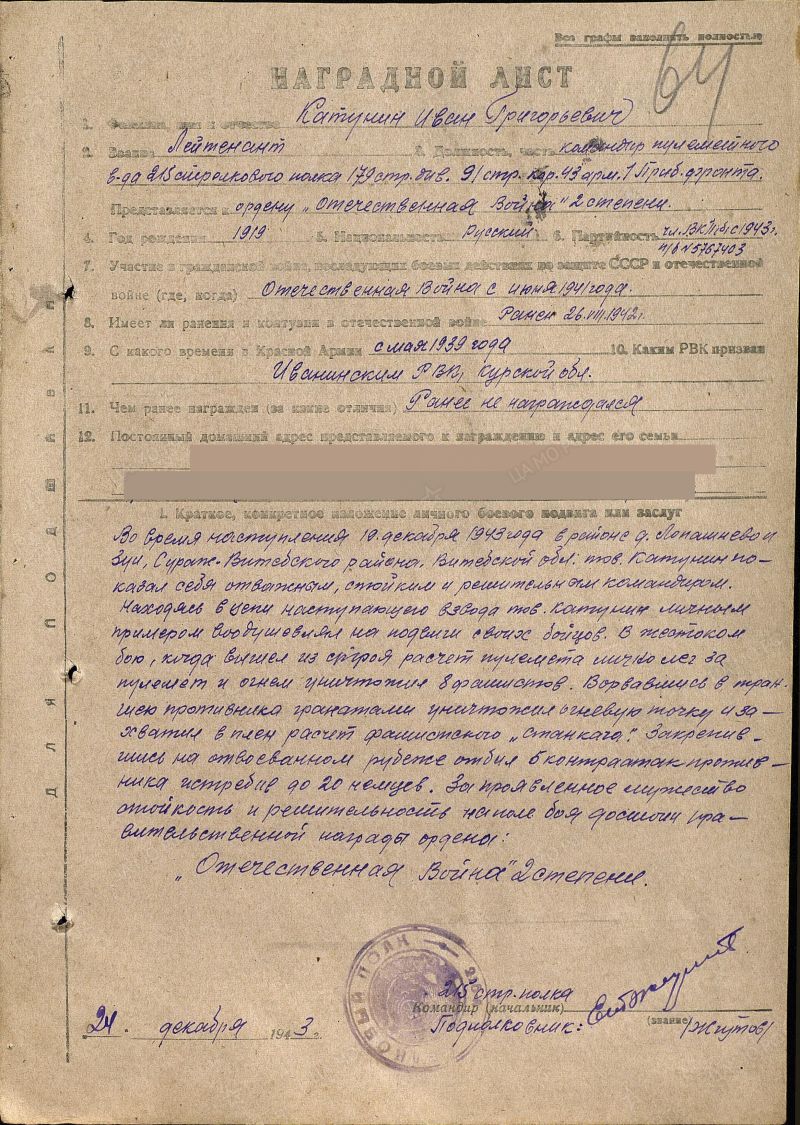 Все графы заполнять полностью
64
НАГРАДНОЙ ЛИСТ
1. Фамилия, имя и отчество Катунин Иван Григорьевич
2. Звание Лейтенант 3. Должность, часть командир пулеметного
в-да 215 стрелкового полка 179 стр. див. 91 стр. кор. 43 арм. 1 Приб. фронта.
Представляется к ордену „Отечественная Война" 2 степени.
4. Год рождения 1919 5. Национальность Русский 6. Партийность чл. ВКП(б) с 1943 г.
п/б №5767403
7. Участие в гражданской войне, последующих боевых действиях по защите СССР и отечественной
войне (где, когда) Отечественная Война с июня 1941 года.
8. Имеет ли ранения и контузии в отечественной войне Ранен 26.VIII.1942 г.
9. С какого времени в Красной Армии с мая 1939 года 10. Каким РВК призван
Иванинским РВК, Курской обл.
11. Чем ранее награжден (за какие отличия) Ранее не награждался
12. Постоянный домашний адрес представляемого к награждению и адрес его семьи
ЦАМО Р
I. Краткое, конкретное изложение личного боевого подвига или заслуг
Во время наступления 19 декабря 1943 года в районе д. и
Зуи, Сураж-Витебского района. Витебской обл. тов. Катунин по-
казал себя отважным, стойким и решительным командиром.
Находясь в цепи наступающего взвода тов. Катунин личным
примером воодушевлял на подвиги своих бойцов. В жестоком
бою, когда вышел из строя расчет пулемета лично лег за
пулемет и огнем уничтожил 8 фашистов. Ворвавшись в тран-
шею противника гранатами уничтожил огневую точку и за-
хватил в плен расчет фашистского „станкача". Закрепив-
шись на отвоеванном рубеже отбил 6 контратак против-
ника истребив до 20 немцев. За проявленное мужество
стойкость и решительность на поле боя достоин пра-
вительственной награды ордена:
„Отечественная Война" 2 степени.
ДЛЯ ПОДШИВКИ
КОВЫЙ ПОЛК
215 стр. полка
Командир (начальник)
24 декабря 1943 г.
Подполковник:
(звание)
/Жгутов/